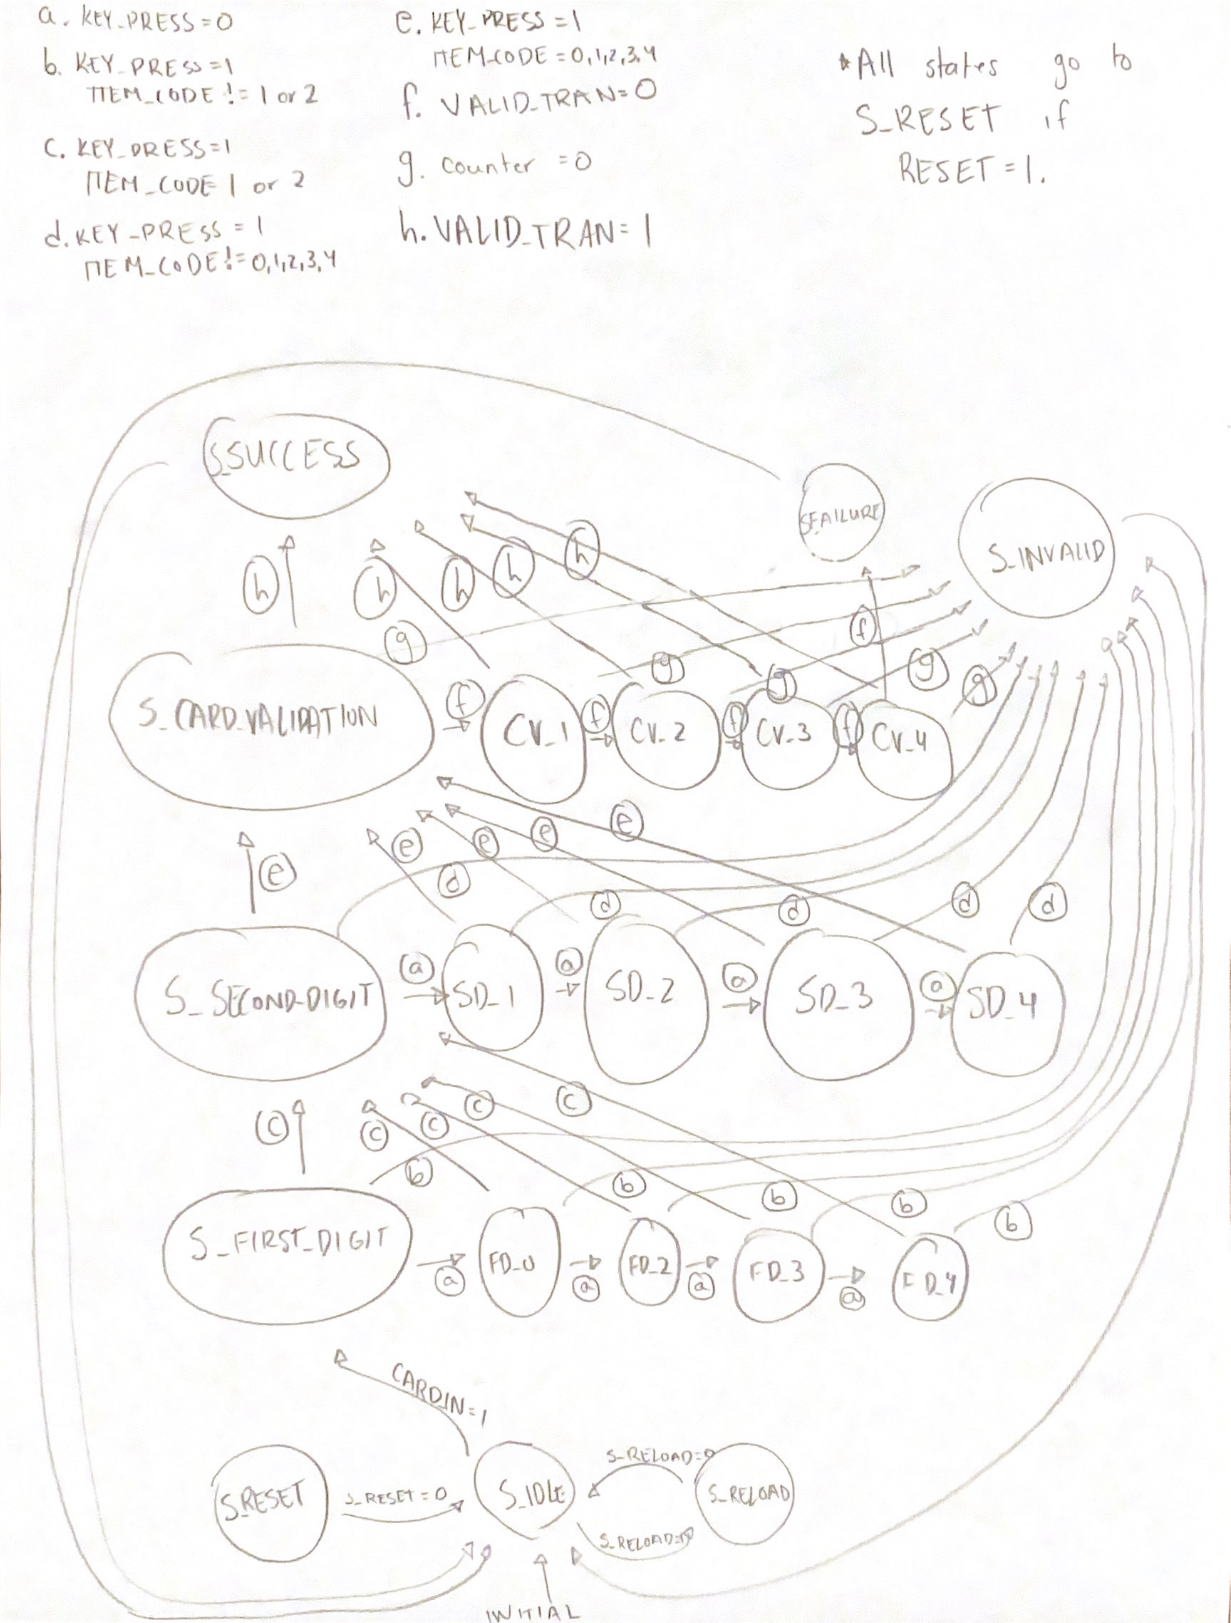 a. KEY_PRESS = 0
b. KEY_PRESS = 1
ITEM_CODE != 1 or 2
c. KEY_PRESS = 1
ITEM_CODE 1 or 2
d. KEY_PRESS = 1
ITEM_CODE != 0,1,2,3,4
e. KEY_PRESS = 1
ITEM_CODE = 0,1,2,3,4
f. VALID_TRAN = 0
g. counter = 0
h. VALID_TRAN = 1
*All states go to
S_RESET if
RESET = 1.
S_SUCCESS
S_FAILURE
S_INVALID
h
h
h
h
h
g
f
g
g
g
g
S_CARD_VALIDATION
f
CV_1
f
CV_2
f
CV_3
f
CV_4
e
e
e
e
e
d
d
d
d
d
S_SECOND_DIGIT
a
SD_1
a
SD_2
a
SD_3
a
SD_4
c
c
c
c
c
b
b
b
b
b
S_FIRST_DIGIT
a
FD_0
a
FD_2
a
FD_3
a
FD_4
CARDIN = 1
S_RESET
S_RESET = 0
S_IDLE
S_RELOAD = 0
S_RELOAD
S_RELOAD =
INITIAL